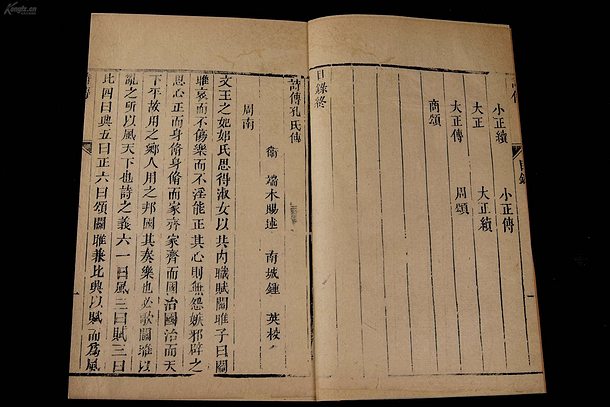 目錄
一
小正續　小正傳
大正　大正續
大正傳　周頌
商頌
目錄終
詩傳孔氏傳
衛　端木賜述　南城鍾　英校
周南
文王之妃姒氏思得淑女以共內職賦關雎子曰關
雎哀而不傷樂而不淫能正其心則無怨嫉邪辟之
思心正而身脩身脩而家齊家齊而國治國治而天
下平故用之鄉人用之邦國其奏樂也必歌關雎以
亂之所以風天下也詩之義六一曰風二曰賦三曰
比四曰興五曰正六曰頌關雎兼比興以賦而爲風
一
Kongfz.cn